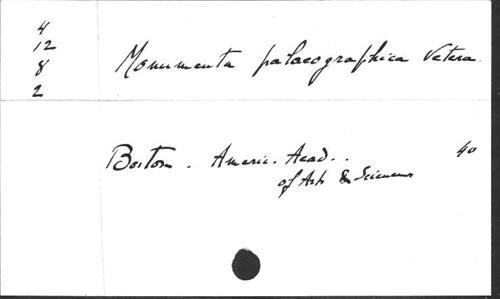 4
12
8
2
Monumenta palaeographica Vetera.
Boston. Americ. Acad..
of Arts & Sciences
4°